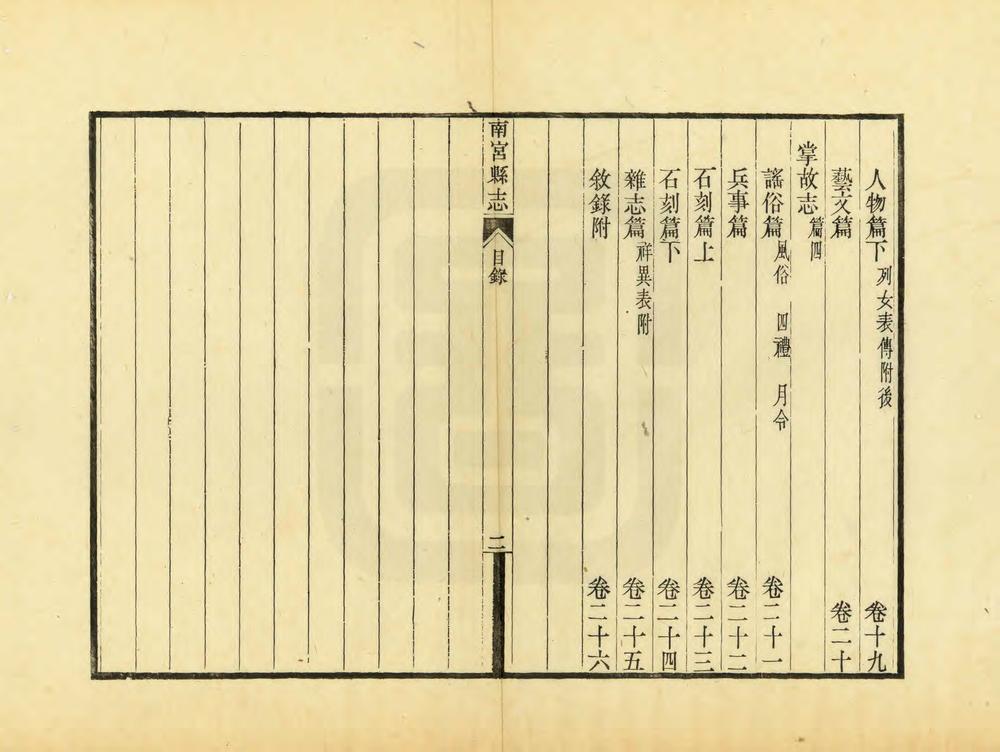 人物篇下 列女表傳附後 卷十九
藝文篇 卷二十
掌故志 篇四
謠俗篇 風俗 四禮 月令 卷二十一
兵事篇 卷二十二
石刻篇上 卷二十三
石刻篇下 卷二十四
雜志篇 祥異表附 卷二十五
敘錄附 卷二十六
南宮縣志 目錄 二